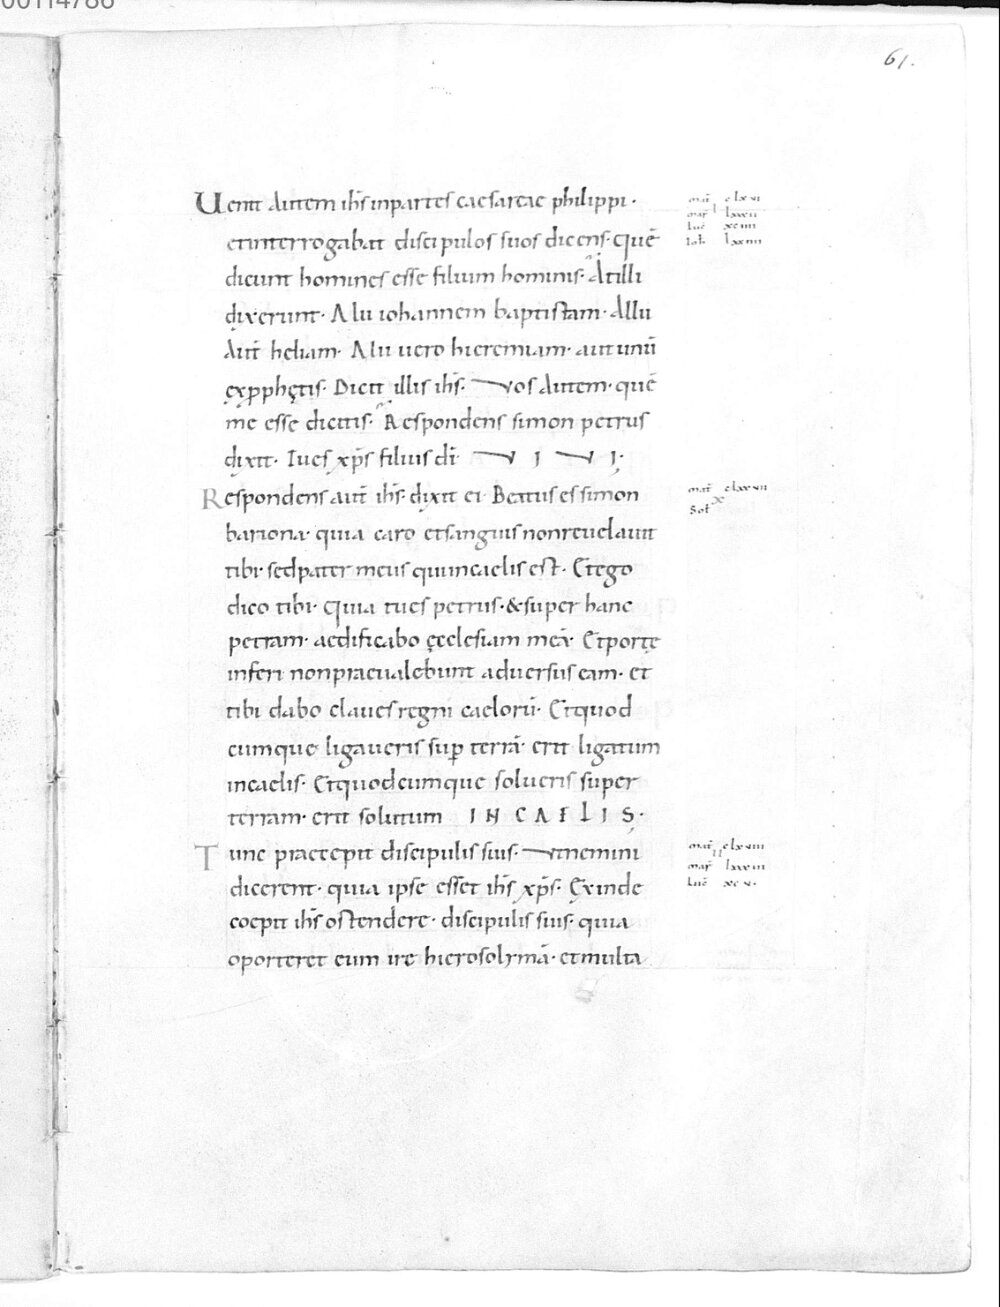 00114786
61.
Uenit autem ihs inpartes caesareae philippi·
etinterrogabat discipulos suos dicens· quē
dicunt homines esse filium hominis· Atilli
dixerunt· Alii iohannem baptistam· Alii
aut̄ heliam· Alii uero hieremiam· aut unū
exprphętis· Dicit illis ihs· Uos autem· quē
me esse dicitis· Respondens simon petrus
dixit· Tu es xp̄s filius dī UIUI·
Respondens aut̄ ihs· dixit ei· Beatus es simon
bariona· quia caro etsanguis nonreuelauit
tibi· sedpater meus quiincaelis est· Etego
dico tibi· quia tues petrus· &super hanc
petram· aedificabo ęcclesiam meā· Etportę
inferi nonpraeualebunt aduersus eam· et
tibi dabo claues regni caelorū· Etquod
cumque ligaueris sup̄ terrā· erit ligatum
incaelis· Etquodcumque solueris super
terram· erit solutum IN CAELIS·
Tunc praecepit discipulis suis· utnemini
dicerent· quia ipse esset ihs xp̄s· Exinde
coepit ihs ostendere· discipulis suis· quia
oporteret eum ire hierosolymā· etmulta
mat̄ clxvi
mar̄ lxxxii
luc̄ xciiii
ioh̄ lxxiiii
mat̄ clxvii
x
Sol̄
mat̄ clxviii
ii
mar̄ lxxxiii
luc̄ xcv·